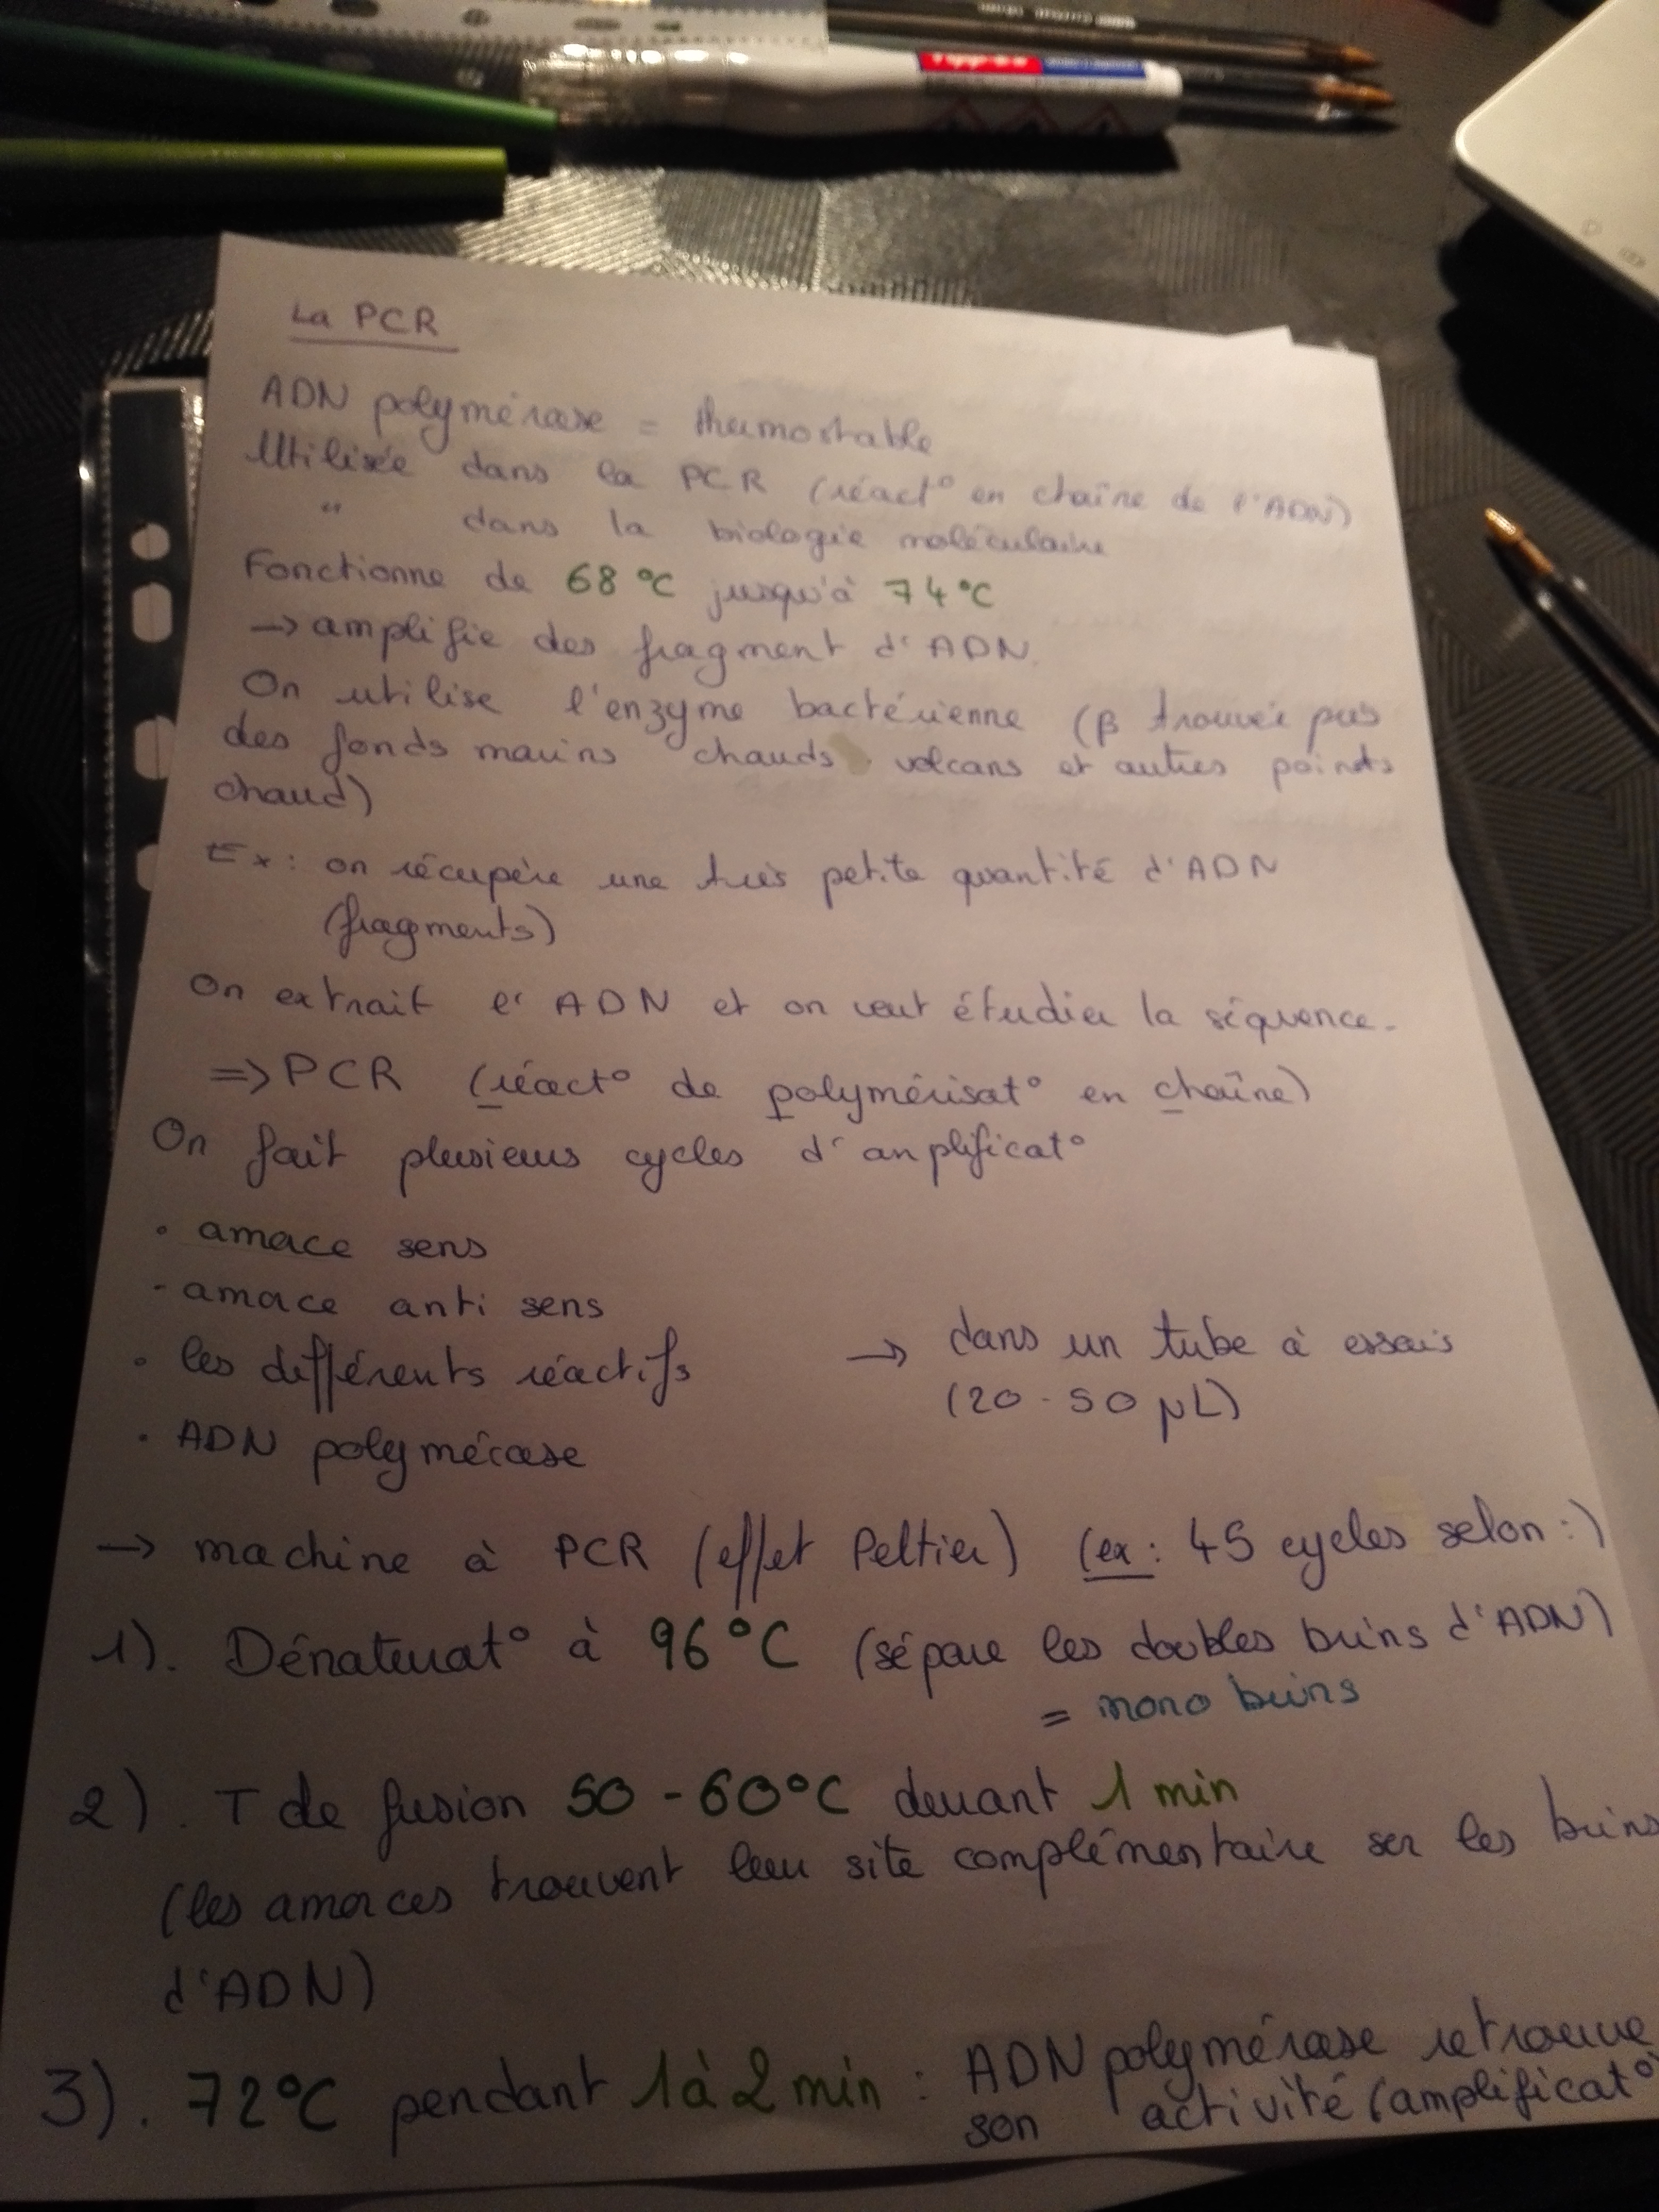 La PCR
ADN polymérase = thermostable
Utilisée dans la PCR (réact° en chaîne de l'ADN)
" dans la biologie moléculaire
Fonctionne de 68 °C jusqu'à 74°C
→ amplifie des fragment d'ADN.
On utilise l'enzyme bactérienne (β trouvée près
des fonds marins chauds. volcans et autres points
chaud)
Ex : on récupère une très petite quantité d'ADN
(fragments)
On extrait l'ADN et on veut étudier la séquence.
=> PCR (réact° de polymérisat° en chaîne)
On fait plusieurs cycles d'anplificat°
• amace sens
- amorce anti sens
• les différents réactifs → dans un tube à essais
(20 - 50 µL)
• ADN polymérase
→ machine à PCR (effet Peltier) (ex : 45 cycles selon :)
1). Dénaturat° à 96°C (sépare les doubles brins d'ADN)
= mono brins
2). T de fusion 50 - 60°C devant 1 min
(les amorces trouvent leur site complémentaire ser les brins
d'ADN)
3). 72°C pendant 1 à 2 min : ADN polymérase retrouve
son activité (amplificat°